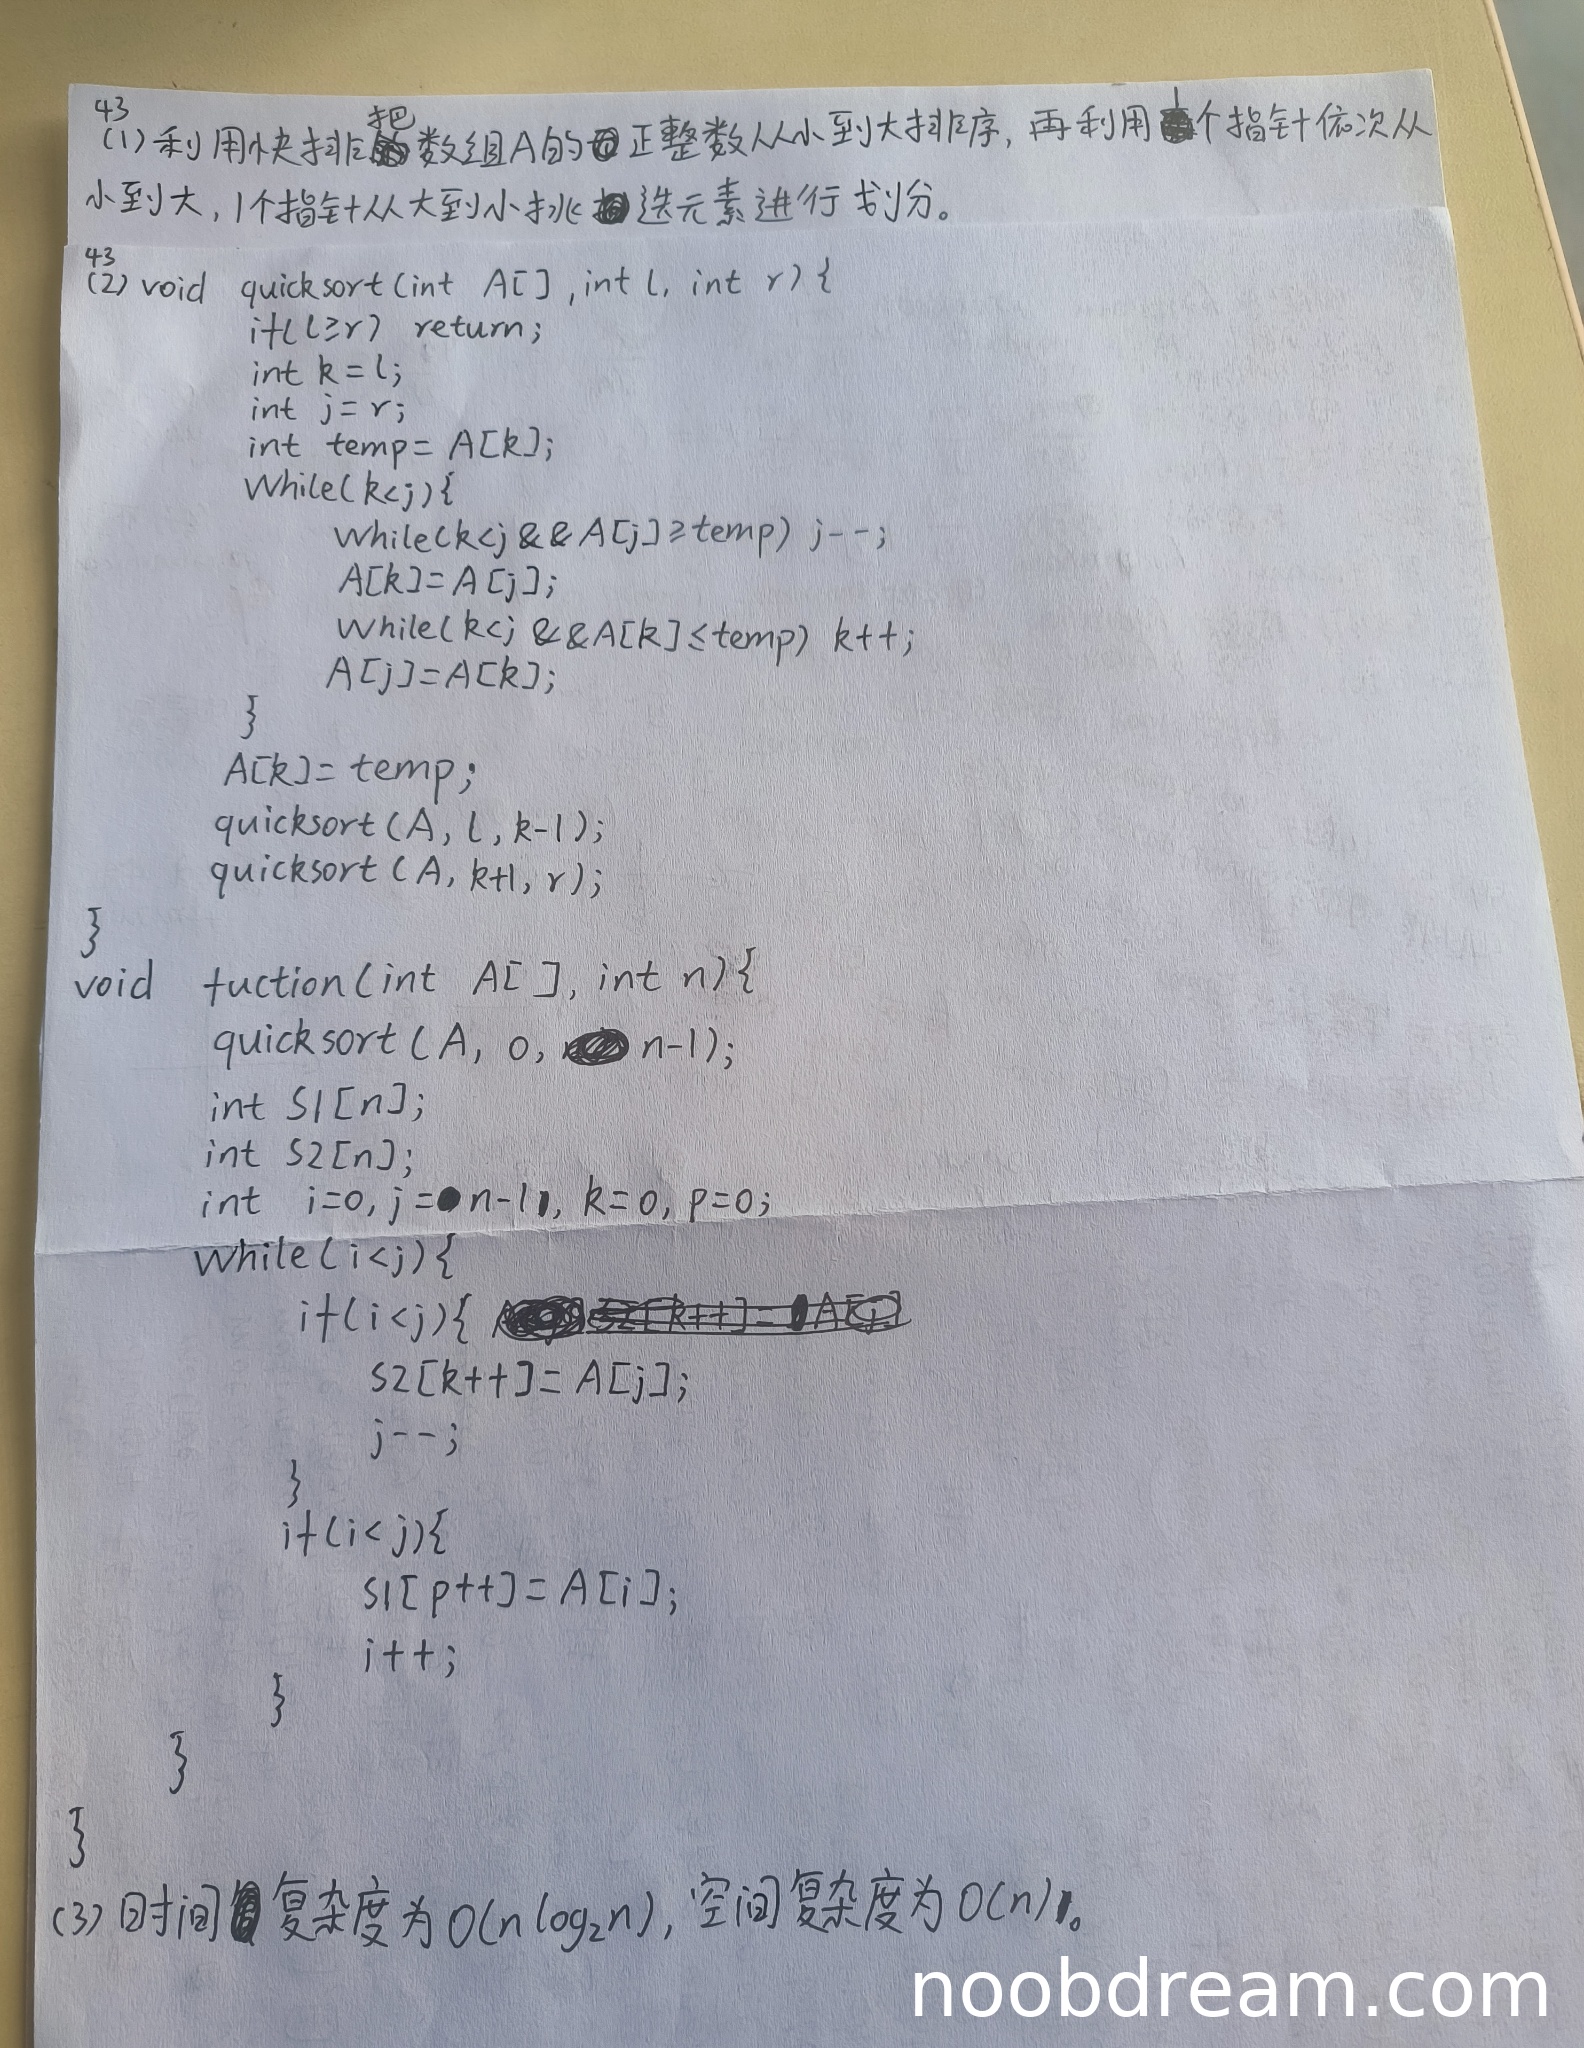 43
(1)利用快排把数组A的正整数从小到大排序,再利用1个指针依次从
小到大,1个指针从大到小挑选元素进行划分。
43
(2) void quicksort(int A[],int l, int r){
if(l≥r) return;
int k=l;
int j=r;
int temp=A[k];
while(k<j){
while(k<j&&A[j]≥temp) j--;
A[k]=A[j];
while(k<j&&A[k]≤temp) k++;
A[j]=A[k];
}
A[k]=temp;
quicksort(A, l, k-1);
quicksort(A, k+1, r);
}
void fuction(int A[], int n){
quicksort(A, 0, n-1);
int S1[n];
int S2[n];
int i=0, j=n-1, k=0, p=0;
while(i<j){
if(i<j){
S2[k++]=A[j];
j--;
}
if(i<j){
S1[p++]=A[i];
i++;
}
}
}
(3)时间复杂度为O(nlog₂n),空间复杂度为O(n)。
noobdream.com